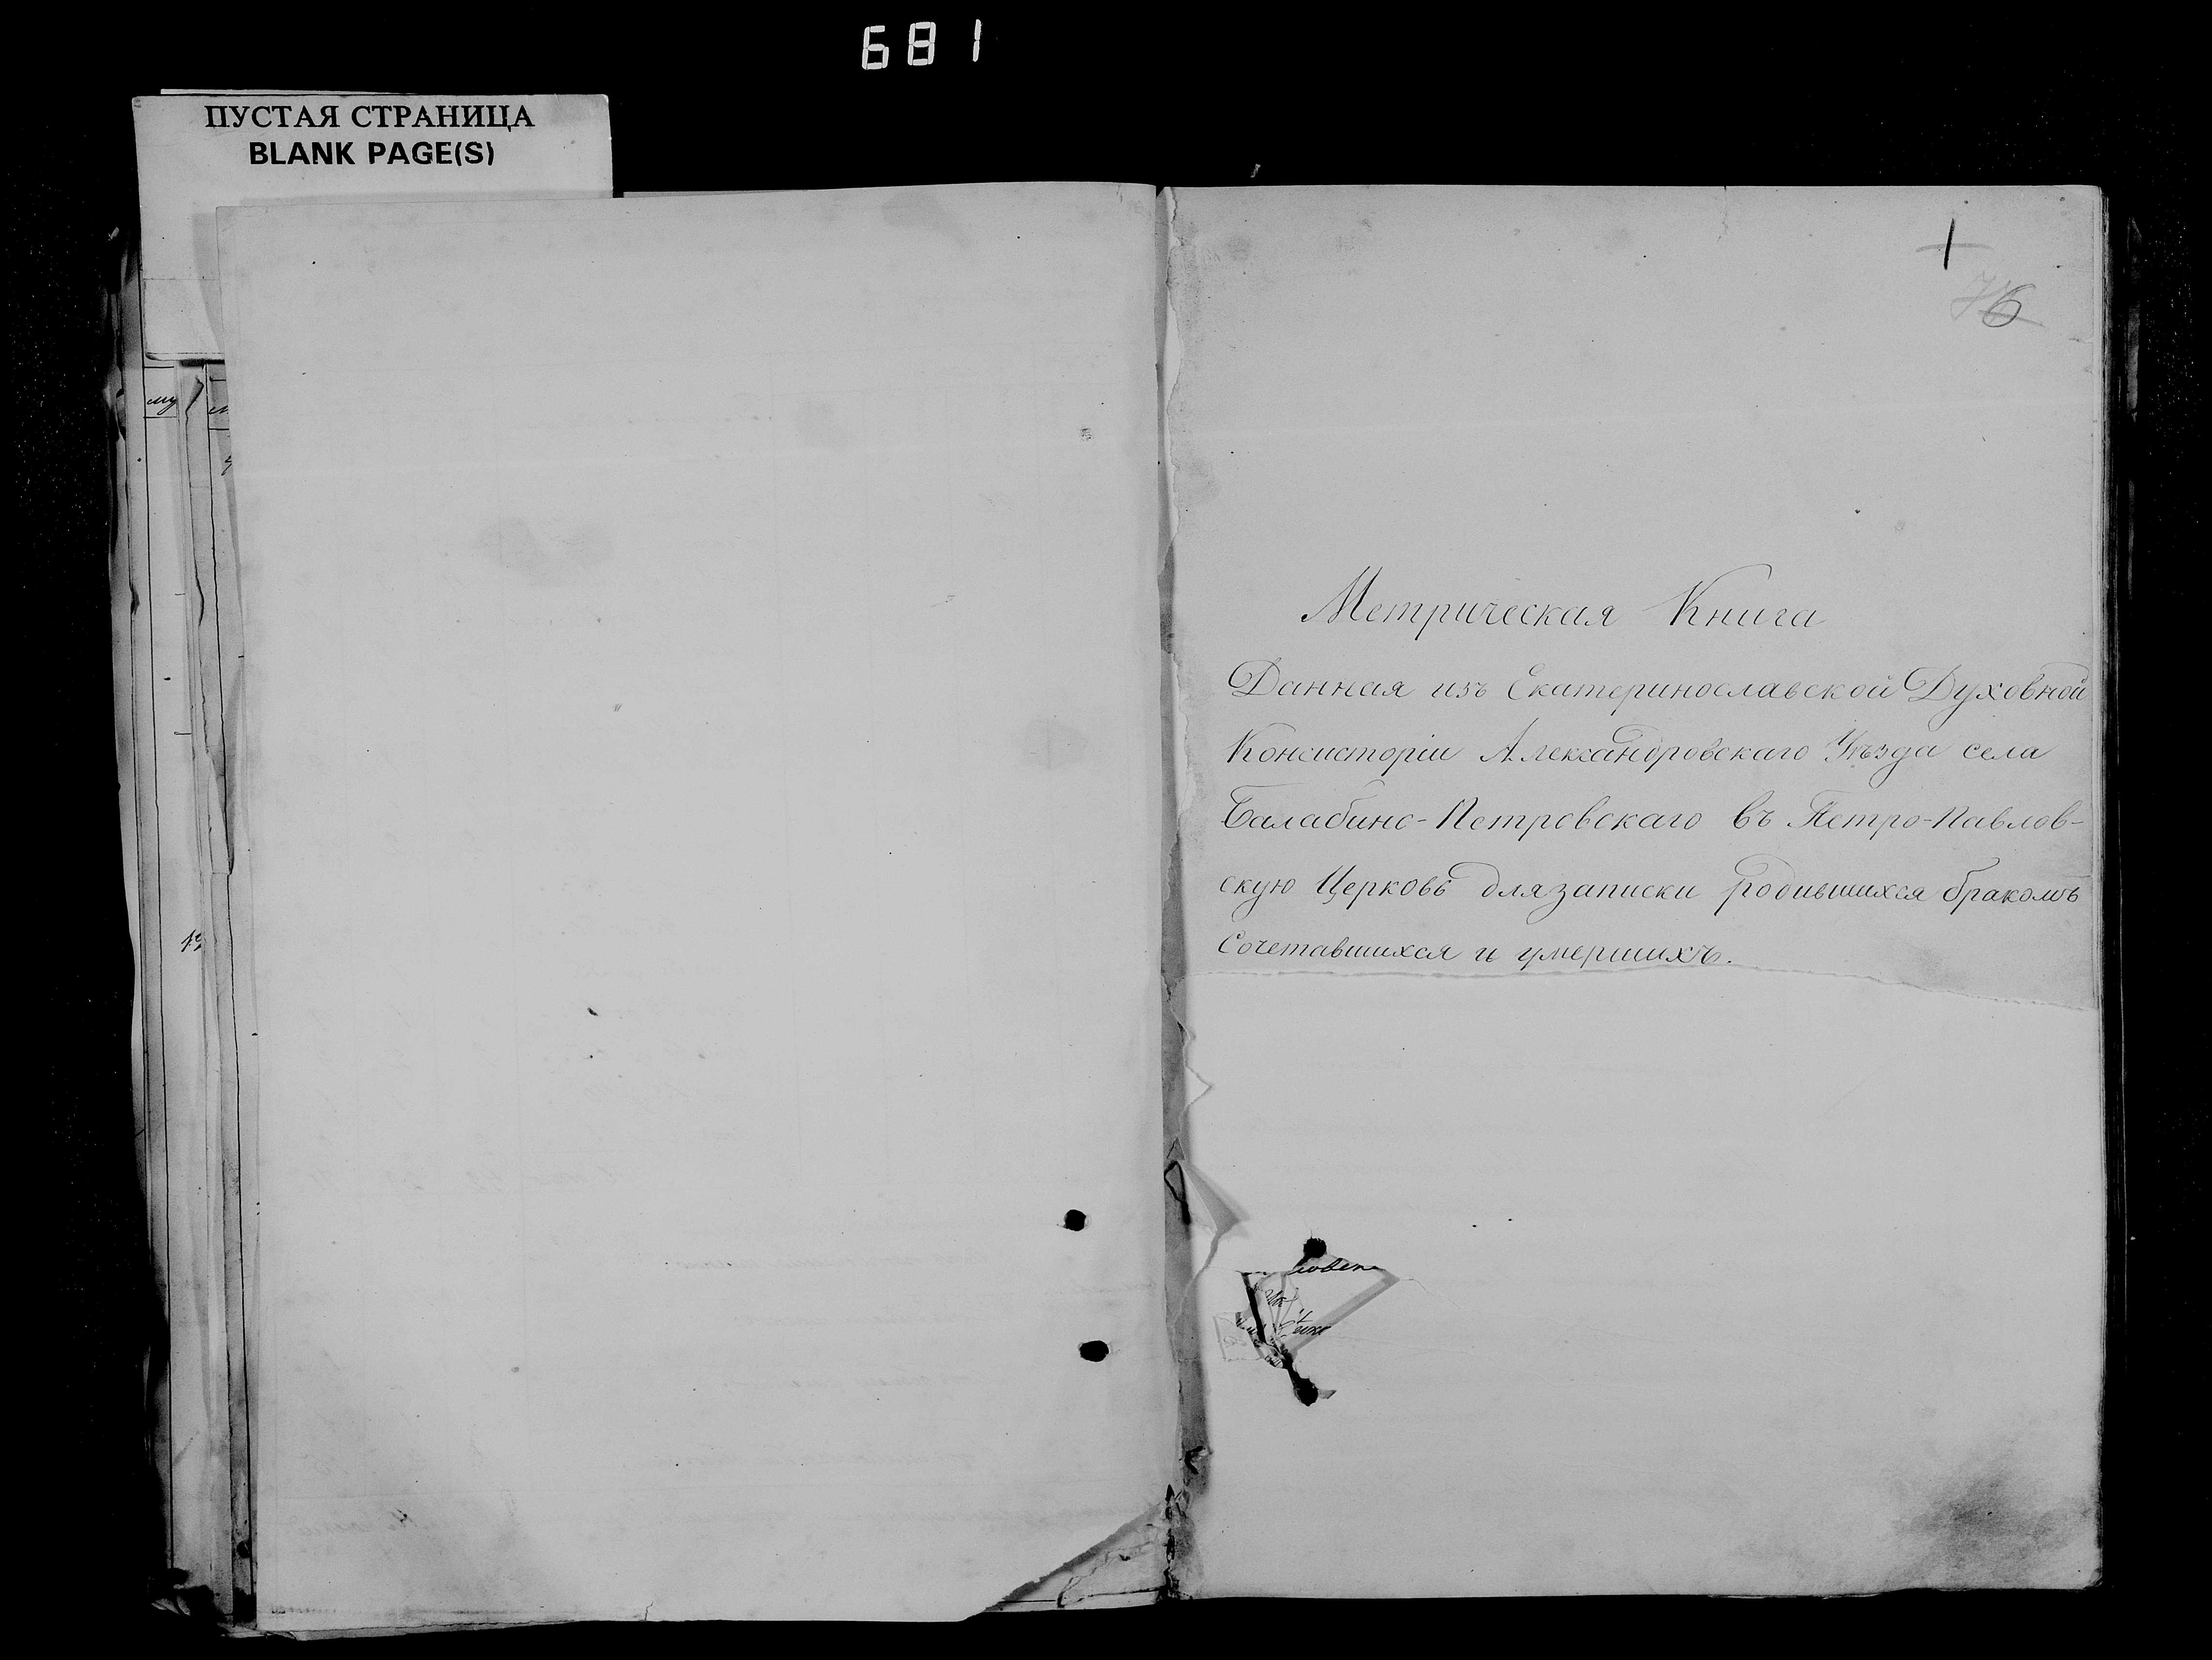 681
ПУСТАЯ СТРАНИЦА
BLANK PAGE(S)
1
76
Метрическая Книга
Данная изъ Екатеринославской Духовной
Консисторіи Александровскаго Уѣзда села
Балабино-Петровскаго въ Петро-Павлов-
скую Церковь для записки родившихся бракомъ
Сочетавшихся и умершихъ.